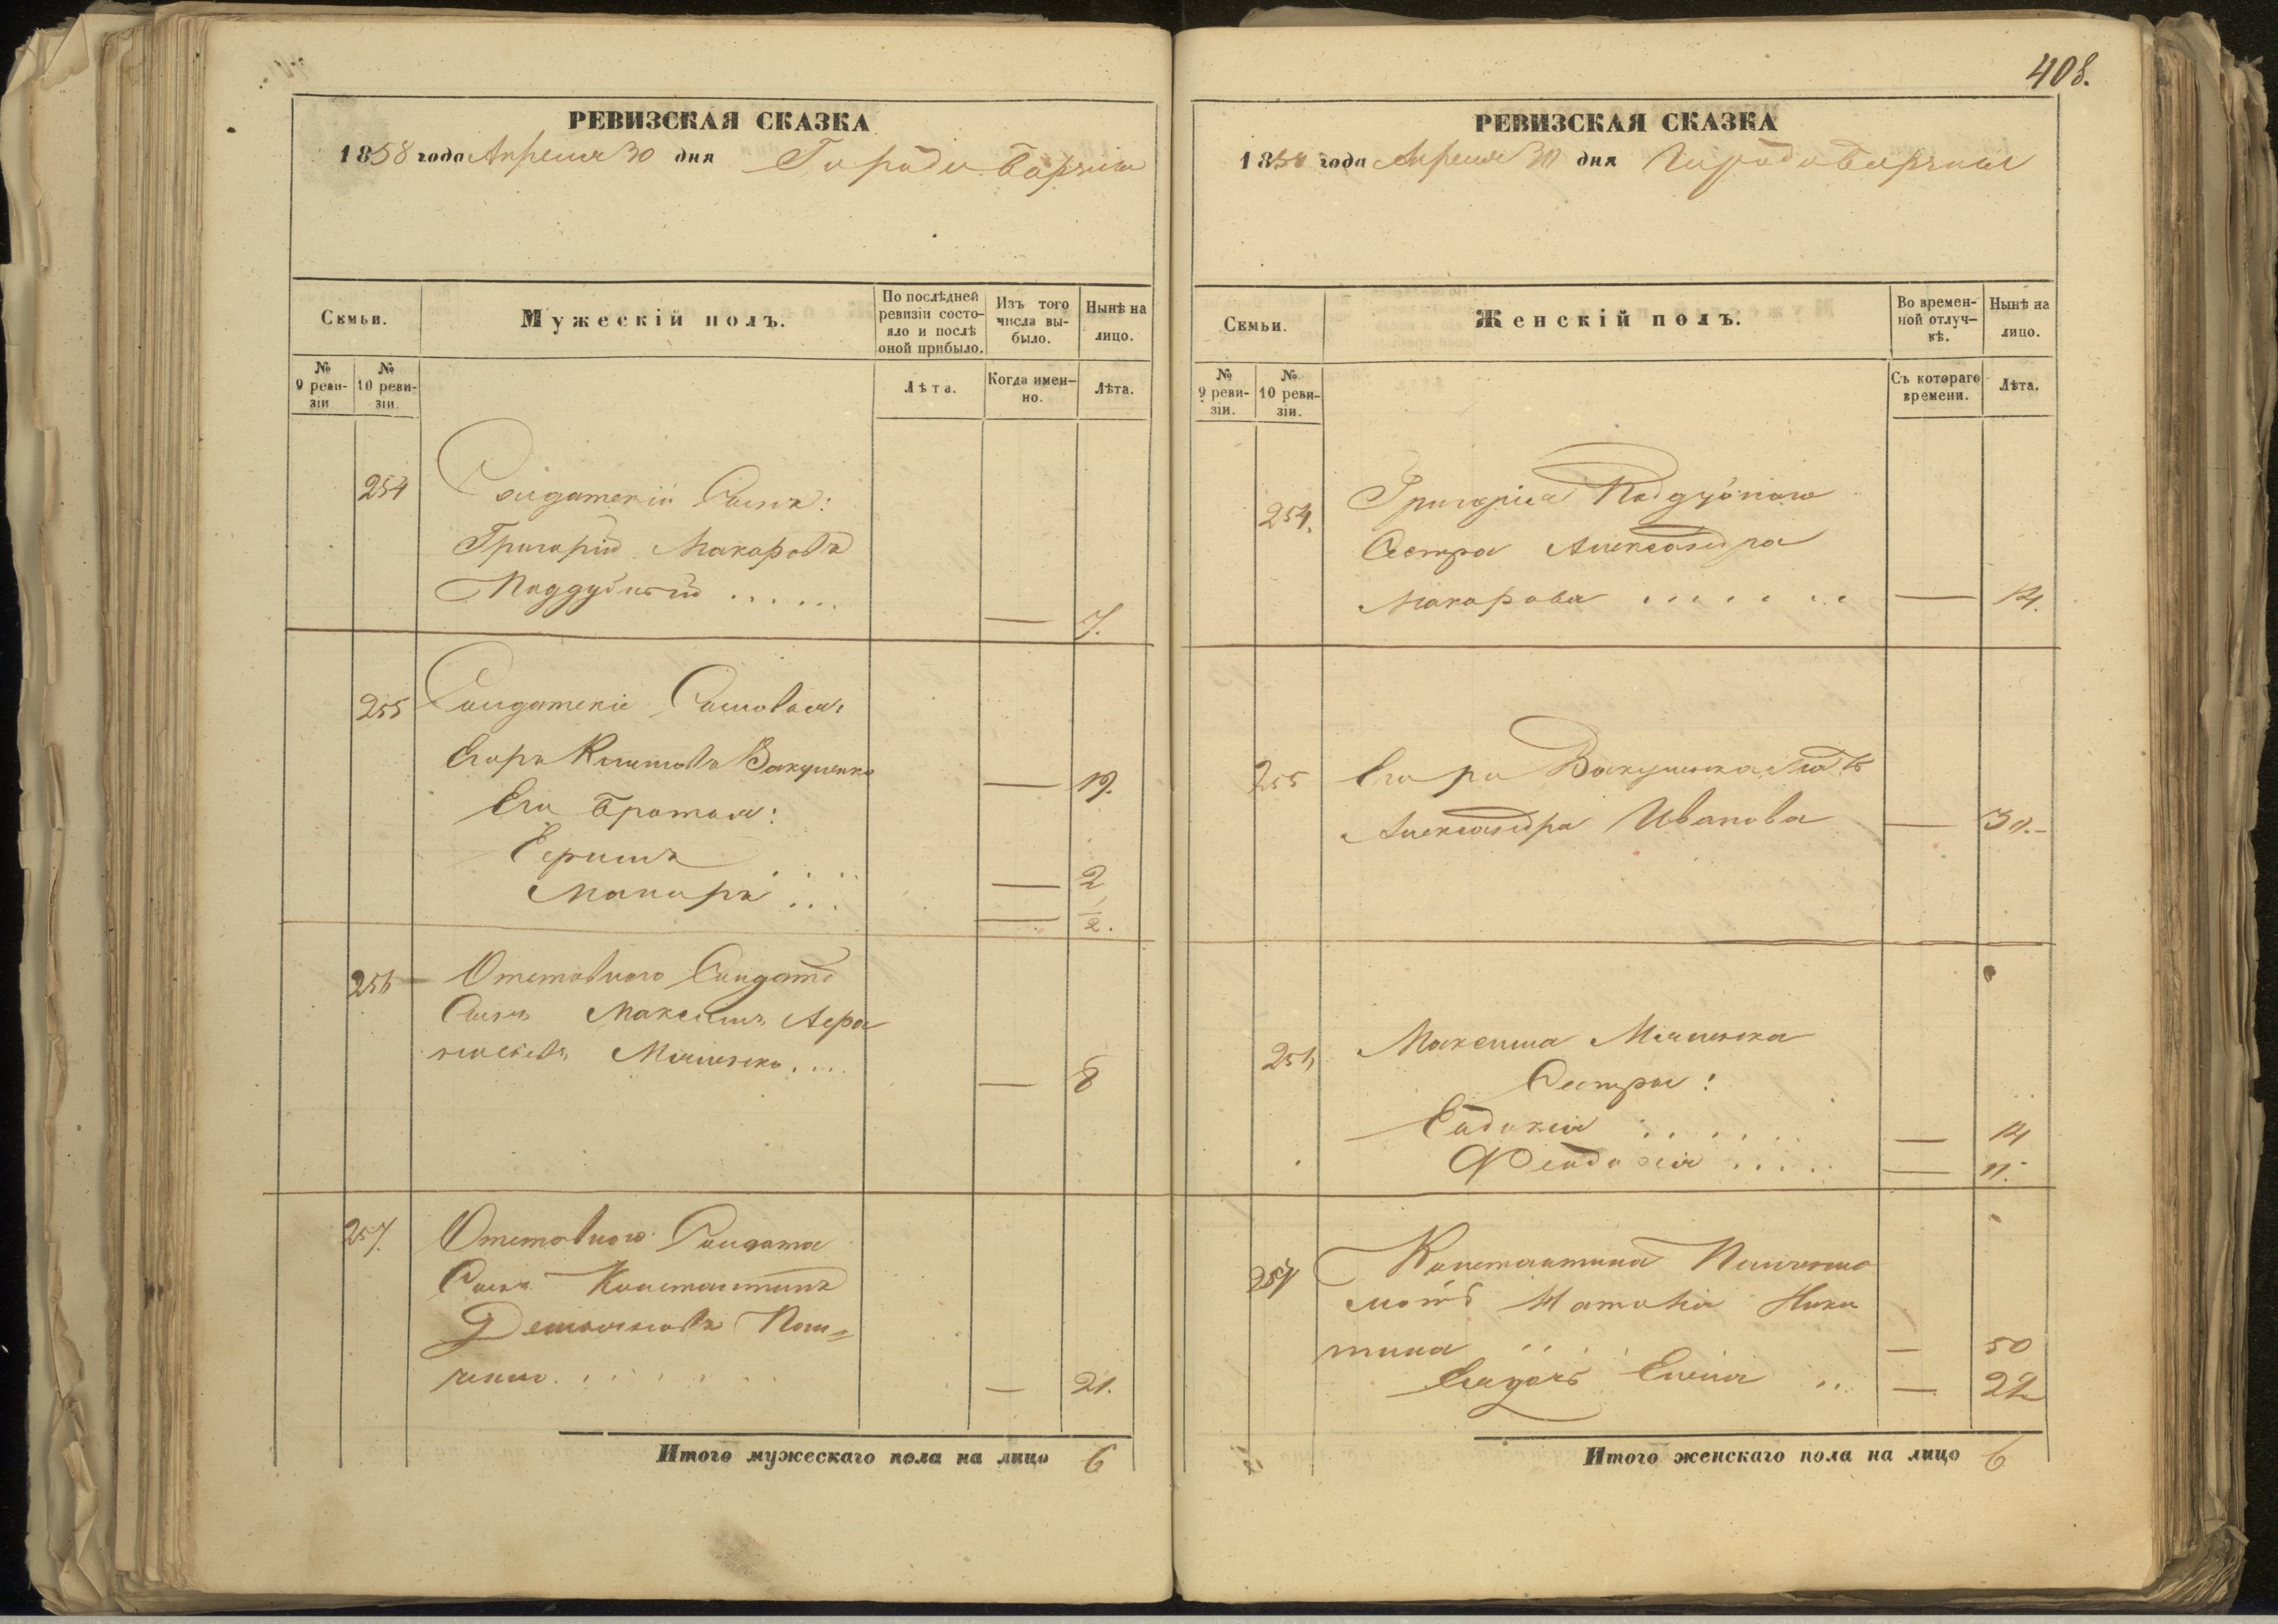 408.
РЕВИЗСКАЯ СКАЗКА
1858 года Апреля 30 дня
Семьи.
Мужескій полъ.
По послѣдней ревизіи состо-
яло и послѣ оной прибыло.
Изъ того числа вы-
было.
Нынѣ на лицо.
№ 9 реви-
зіи
№ 10 реви-
зіи.
Лѣта.
Когда имен-
но.
Лѣта.
254
Солдатскій Сынъ:
Григорій Макаровъ
Поддубный ......
— 7.
255
Солдатскіе Сыновья:
Егоръ Климовъ Вакуленко
— 19.
Его братья:
Макаръ
— 2
— 1/2.
256
Отставного Солдата
Сынъ Максимъ
— 8
257.
Отставного Солдата
Сынъ Константинъ
Демьяновъ Пан=
ченко.
— 21.
Итого мужескаго пола на лицо 6
РЕВИЗСКАЯ СКАЗКА
1858 года Апреля 30 дня
Семьи.
Женскій полъ.
Во времен-
ной отлуч-
кѣ.
Нынѣ на лицо.
№ 9 реви-
зіи.
№ 10 реви-
зіи.
Съ котораго времени.
Лѣта.
254.
Григорія Поддубного
Сестра Александра
Макарова ......
— 14.
255
Егора Вакуленка мать
Александра Иванова
—
256
Максима
Сестры:
Евдокія ......
— 14
Феодосія .....
— 11.
257
Константина Панченко
мать Наталія Ники
тина
— 50
Елена ..
— 22
Итого женскаго пола на лицо 6